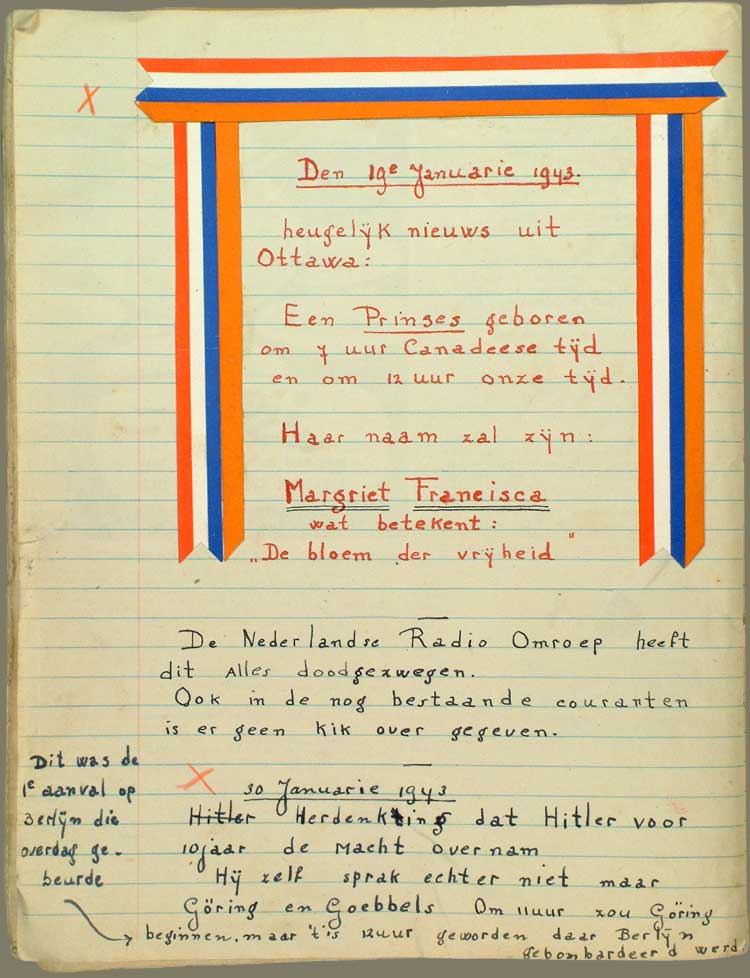 X
Den 19e Januarie 1943.
heugelijk nieuws uit
Ottawa:
Een Prinses geboren
om 7 uur Canadeese tijd
en om 12 uur onze tijd.
Haar naam zal zijn:
Margriet Francisca
wat betekent:
„De bloem der vrijheid"
De Nederlandse Radio Omroep heeft
dit Alles doodgezwegen.
Ook in de nog bestaande couranten
is er geen kik over gegeven.
X 30 Januarie 1943
Hitler Herdenking dat Hitler voor
10 jaar de Macht overnam
Hij zelf sprak echter niet maar
Göring en Goebbels Om 11 uur zou Göring
beginnen, maar 't is 12 uur geworden daar Berlijn
gebombardeerd werd.
Dit was de
1e aanval op
Berlijn die
overdag ge-
beurde